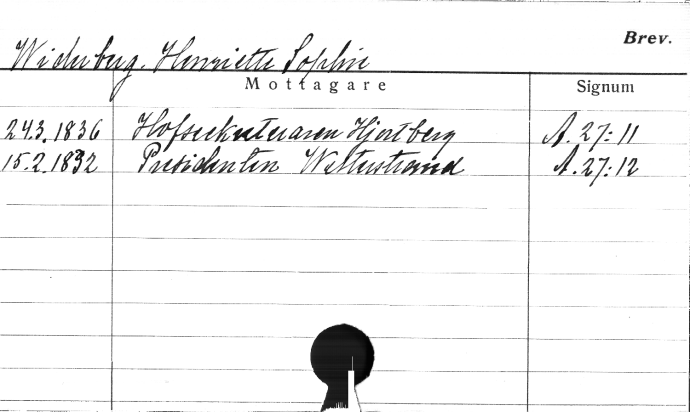 Brev.
Widerberg, Henriette Sophie
Mottagare Signum
24.3.1836 Hofsekreteraren Hjertberg A. 27:11
15.2.1832 Presidenten Wetterstrand A. 27:12